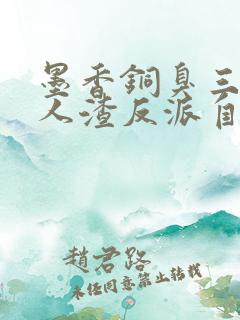 墨香銅臭三
人渣反派自
趙君路
未经同意禁止转载